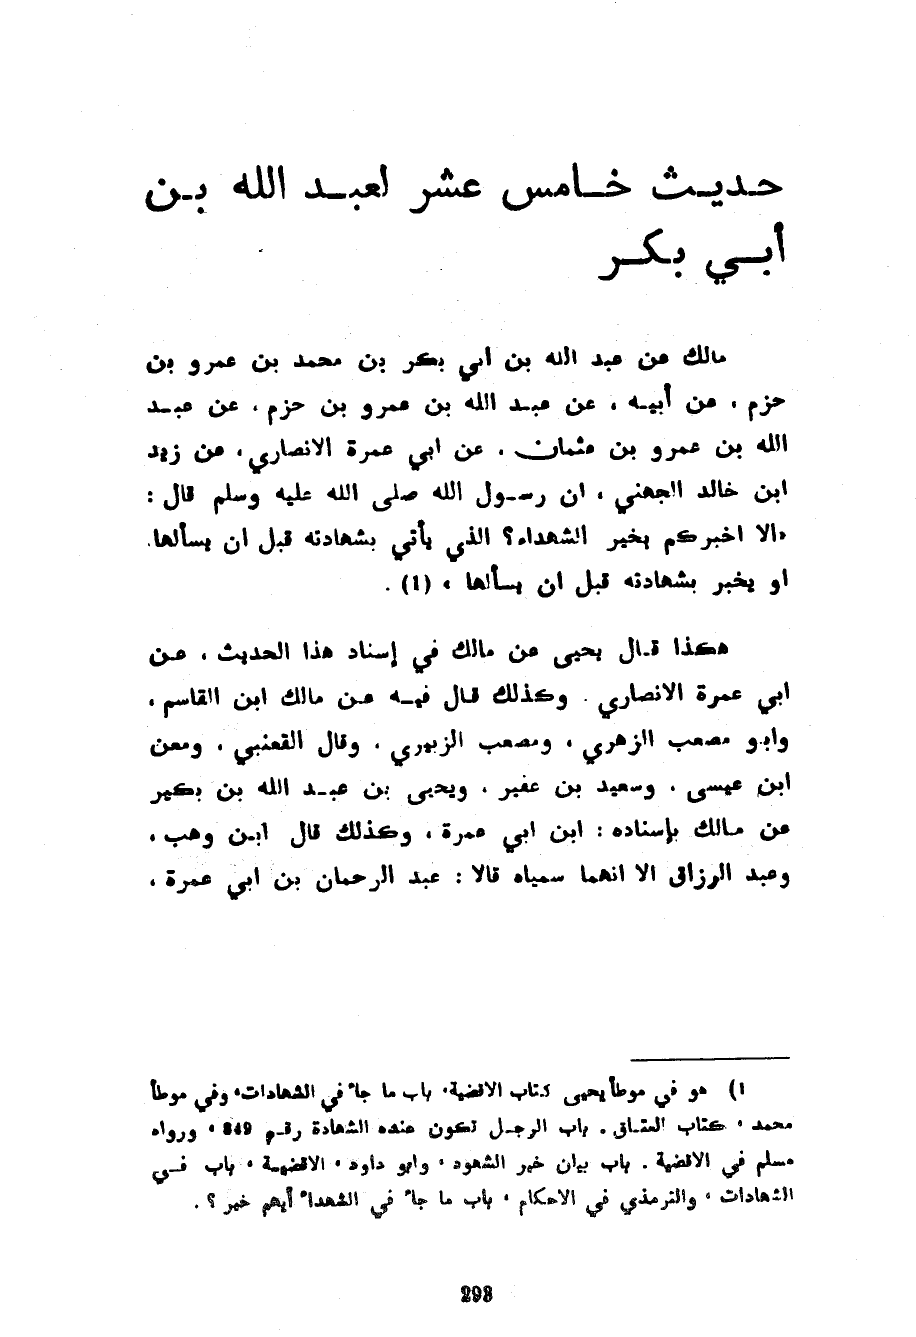 حديث خامس عشر لعبد الله بن
أبي بكر
مالك عن عبد الله بن أبي بكر بن محمد بن عمرو بن
حزم ، عن أبيه ، عن عبد الله بن عمرو بن حزم ، عن عبد
الله بن عمرو بن عثمان ، عن ابي عمرة الانصاري، عن زيد
ابن خالد الجهني ، ان رسول الله صلى الله عليه وسلم قال :
«الا اخبركم بخير الشهداء؟ الذي يأتي بشهادته قبل ان يسألها.
او يخبر بشهادته قبل ان يسألها » (1) .
هكذا قال يحيى عن مالك في إسناد هذا الحديث ، عن
ابي عمرة الانصاري . وكذلك قال فيه عن مالك ابن القاسم ،
وابو مصعب الزهري ، ومصعب الزبيري ، وقال القعنبي ، ومعن
ابن عيسى ، وسعيد بن عفير ، ويحيى بن عبد الله بن بكير
عن مالك بإسناده : ابن ابي عمرة ، وكذلك قال ابن وهب ،
وعبد الرزاق الا انهما سمياه قالا : عبد الرحمان بن ابي عمرة ،
1) هو في موطأ يحيى كتاب الاقضية، باب ما جاء في الشهادات، وفي موطأ
محمد ، كتاب العتاق . باب الرجل تكون عنده الشهادة رقم 849 ، ورواه
مسلم في الاقضية . باب بيان خير الشهود ، وابو داود ، الاقضية ، باب في
الشهادات ، والترمذي في الاحكام ، باب ما جاء في الشهداء أيهم خير ؟ .
298